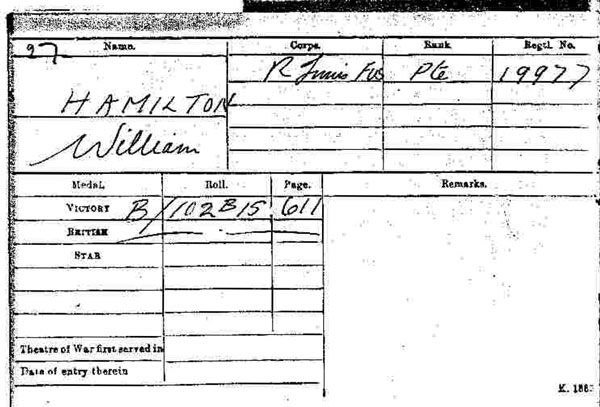 97 Name. Corps. Rank Regtl. No.
R Innis Fus Pte 19977
HAMILTON
William
Medal. Roll. Page. Remarks.
VICTORY B/102B15 611
BRITISH
STAR
Theatre of War first served in
Date of entry therein